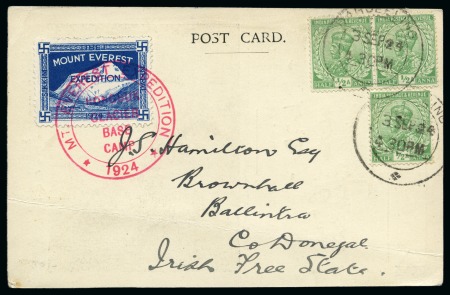 POST CARD.
MOUNT EVEREST
EXPEDITION
MT EVEREST EXPEDITION
BASE
CAMP
1924
3 SEP 24
.30PM
3 SEP 24
4.30PM
J.S. Hamilton Esq
Brownhall
Ballintra
Co Donegal
Irish Free State.